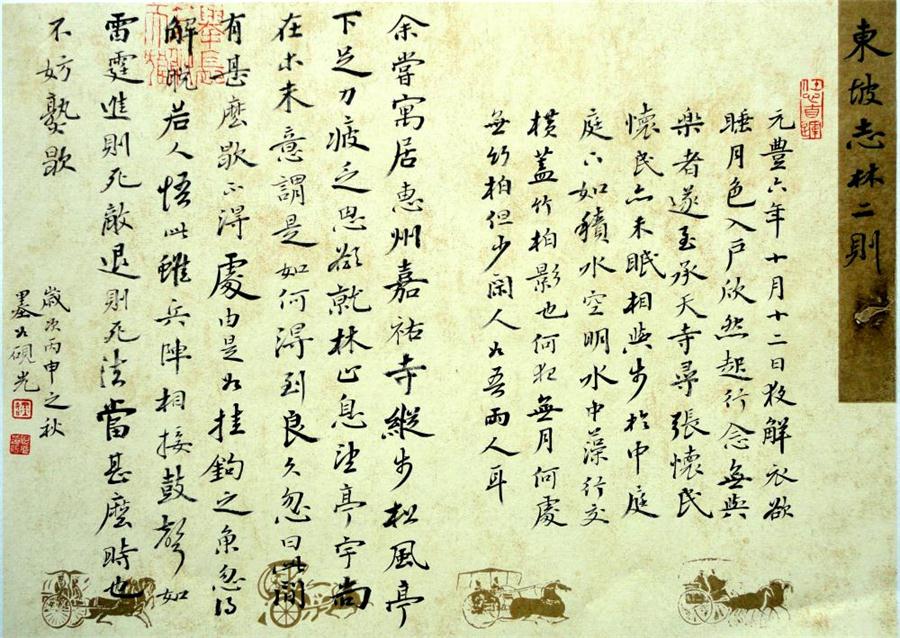 東坡志林二則
元豐六年十月十二日夜解衣欲
睡月色入戶欣然起行念無與
樂者遂至承天寺尋張懷民
懷民亦未眠相與步於中庭
庭下如積水空明水中藻行交
橫蓋竹柏影也何夜無月何處
無竹柏但少閑人如吾兩人耳
余嘗寓居惠州嘉祐寺縱步松風亭
下足力疲乏思欲就林止息望亭宇尚
在木末意謂是如何得到良久忽曰此間
有甚麼歇不得處由是如挂鉤之魚忽得
解脫若人悟此雖兵陣相接鼓聲如
雷霆進則死敵退則死法當甚麼時也
不妨熟歇
歲次丙申之秋
墨如硯光